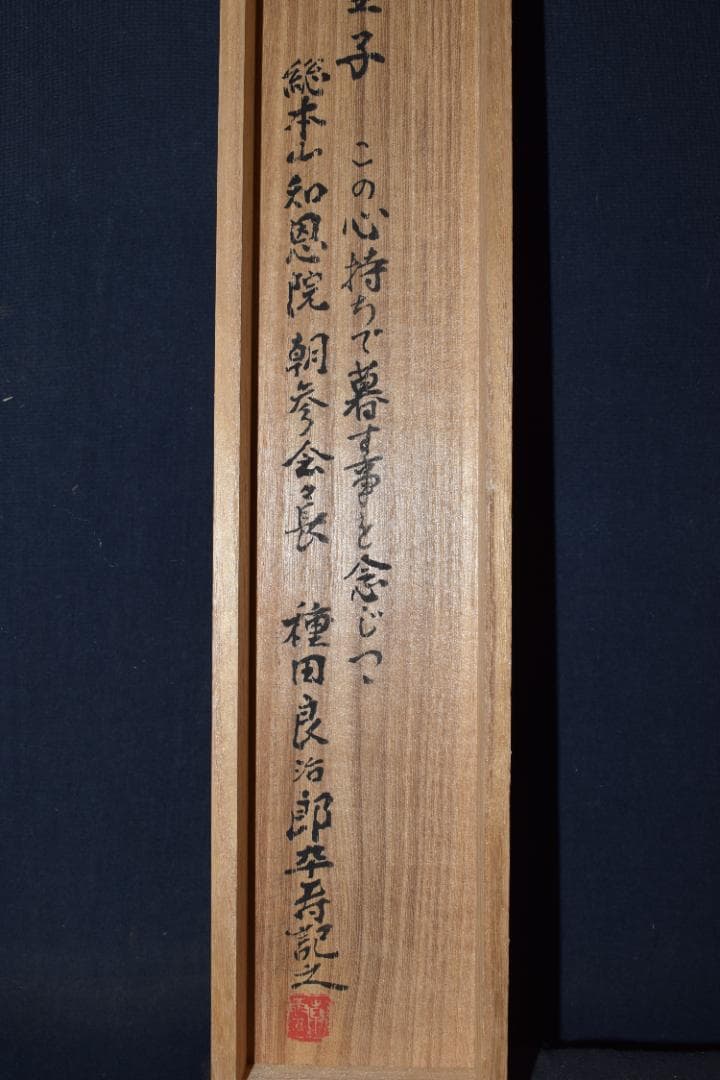 子 この心持ちで暮す事を念じつゝ
総本山知恩院 朝参会々長 種田良治郎卆寿記之